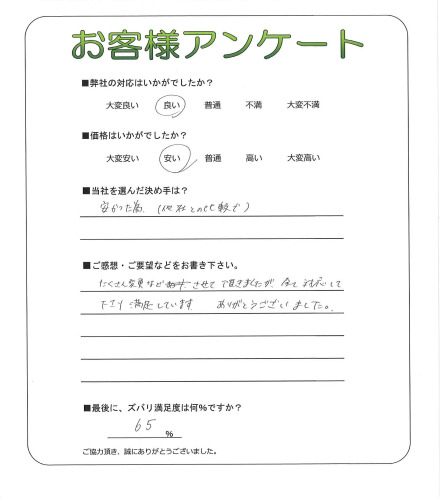 お客様アンケート
■弊社の対応はいかがでしたか?
大変良い 良い 普通 不満 大変不満
■価格はいかがでしたか?
大変安い 安い 普通 高い 大変高い
■当社を選んだ決め手は?
安かった為。(他社との比較で)
■ご感想・ご要望などをお書き下さい。
たくさん させて頂きましたが、全て対応して
下さり満足しています ありがとうございました。
■最後に、ズバリ満足度は何%ですか?
65 %
ご協力頂き、誠にありがとうございました。